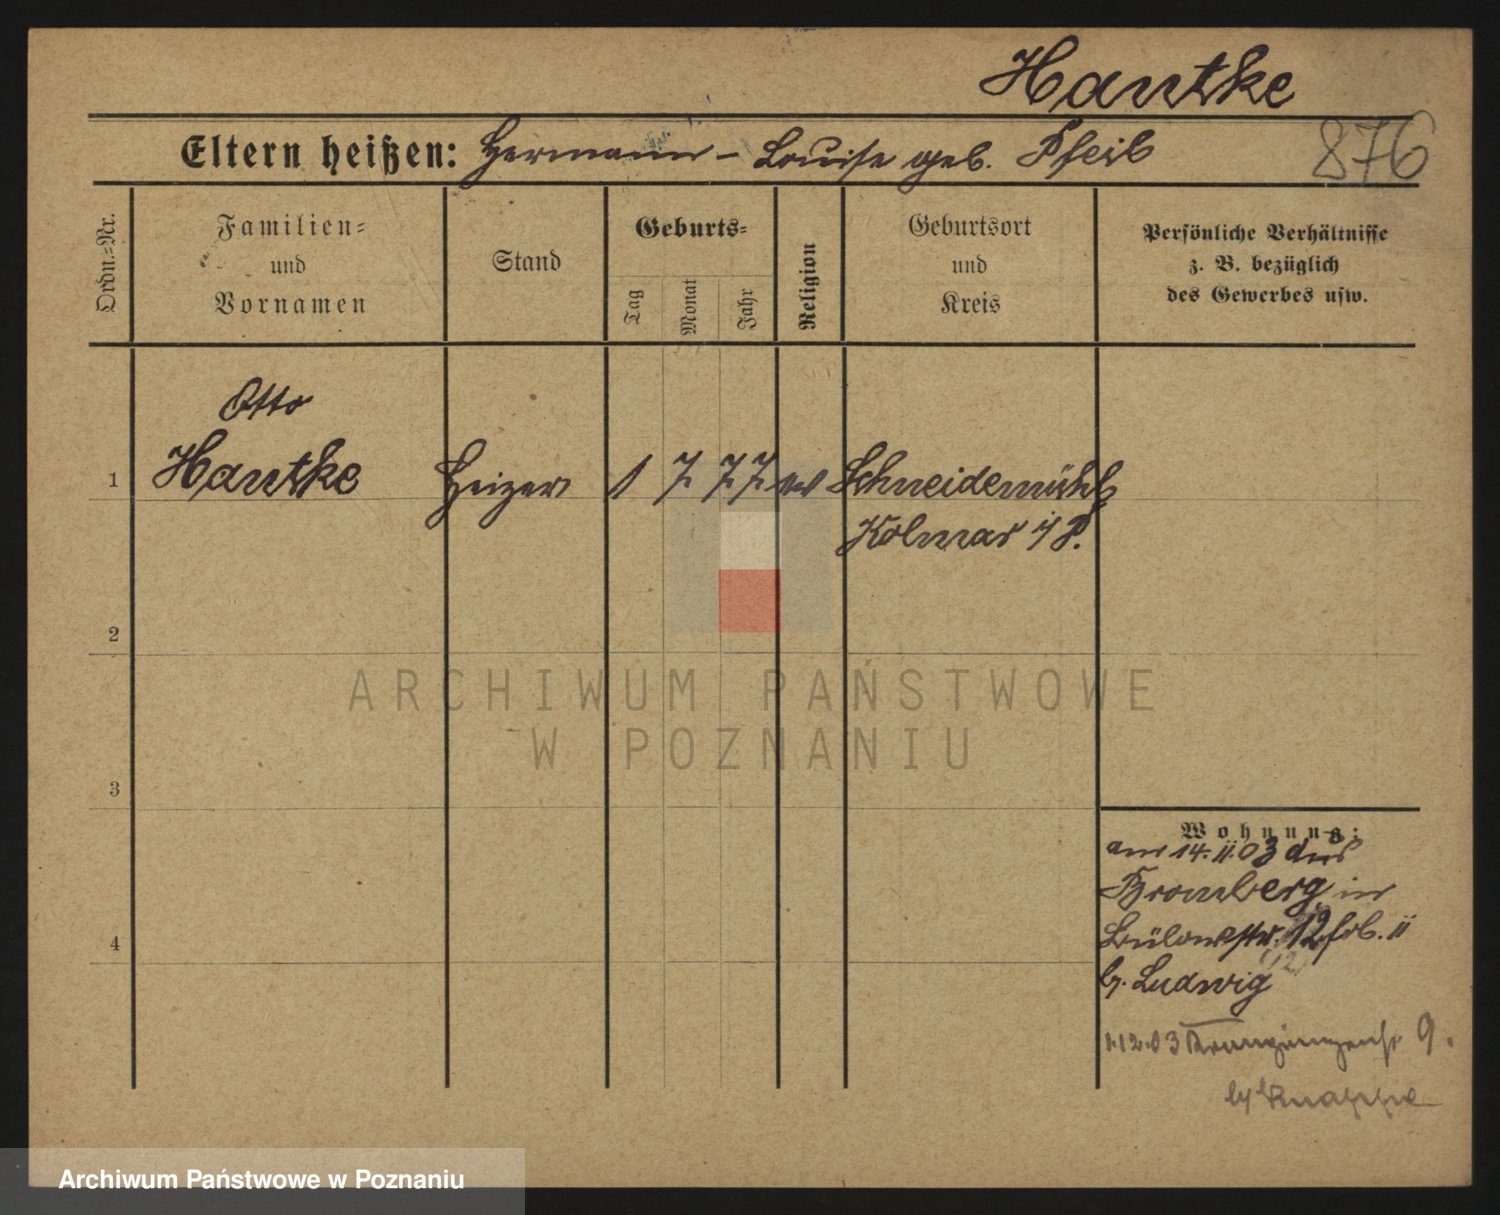 Hantke
876
Eltern heißen: Hermann – Louise geb. Pfeil
Ordn.=Nr.
Familien=
und
Vornamen
Stand
Geburts=
Tag
Monat
Jahr
Religion
Geburtsort
und
Kreis
Persönliche Verhältnisse
z. B. bezüglich
des Gewerbes usw.
Otto
1 Hantke Heizer 1 7 77 ev Schneidemühl
Kolmar i/P.
2
3
4
ARCHIWUM PAŃSTWOWE
W POZNANIU
Wohnung:
am 14.11.03 aus
Bromberg in
Bülowstr. 12
b. Ludwig
1.12.03 Kronprinzenstr 9.
b/ Knappe
Archiwum Państwowe w Poznaniu